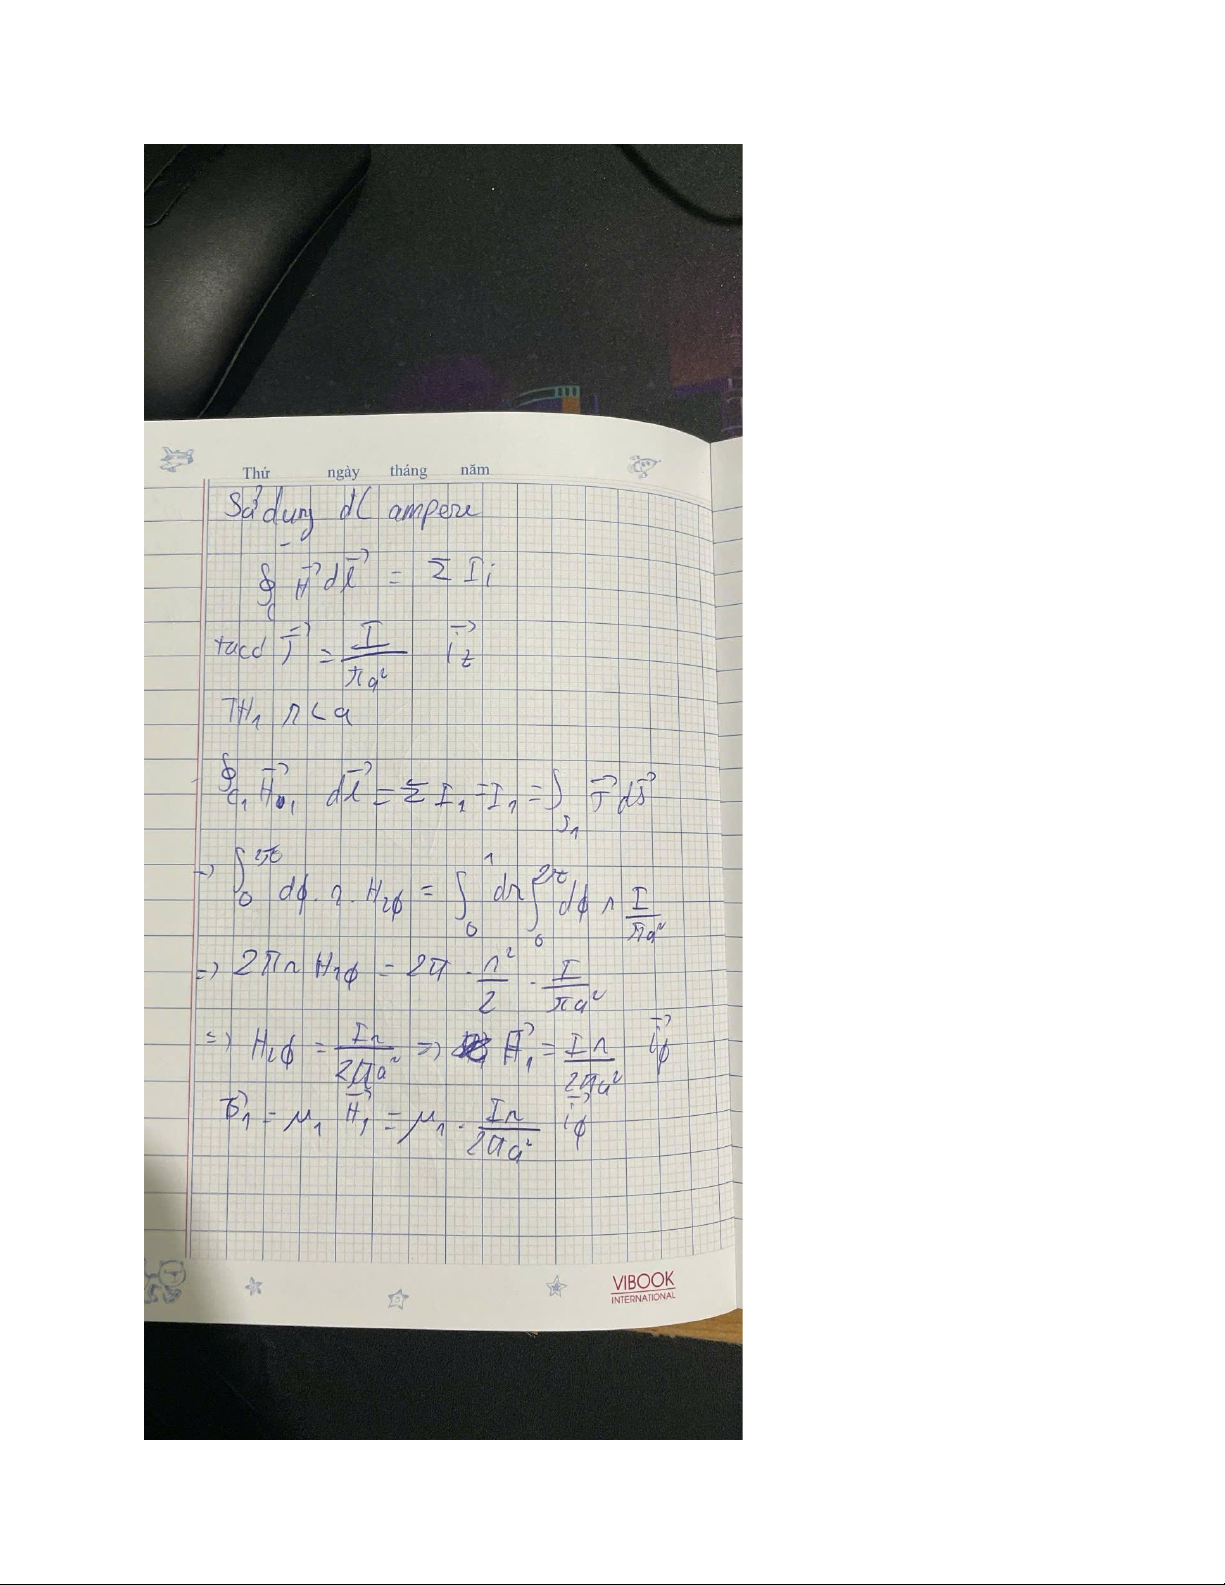 Thứ ngày tháng năm
Sử dụng đl ampere
∮_C H⃗ dl⃗ = Σ I_i
ta có J⃗ = I/(πa²) i⃗_z
TH₁ r < a
∮_C₁ H⃗₁ dl⃗ = Σ I₁ = I₁ = ∫_S₁ J⃗ dS⃗
→ ∫₀^2π dϕ . r . H₁ϕ = ∫₀^r dr ∫₀^2π dϕ r I/(πa²)
=> 2πr H₁ϕ = 2π . r²/2 . I/(πa²)
=> H₁ϕ = Ir/(2πa²) => H⃗₁ = Ir/(2πa²) i⃗_ϕ
B⃗₁ = μ₁ H⃗₁ = μ₁ . Ir/(2πa²) i⃗_ϕ
VIBOOK
INTERNATIONAL